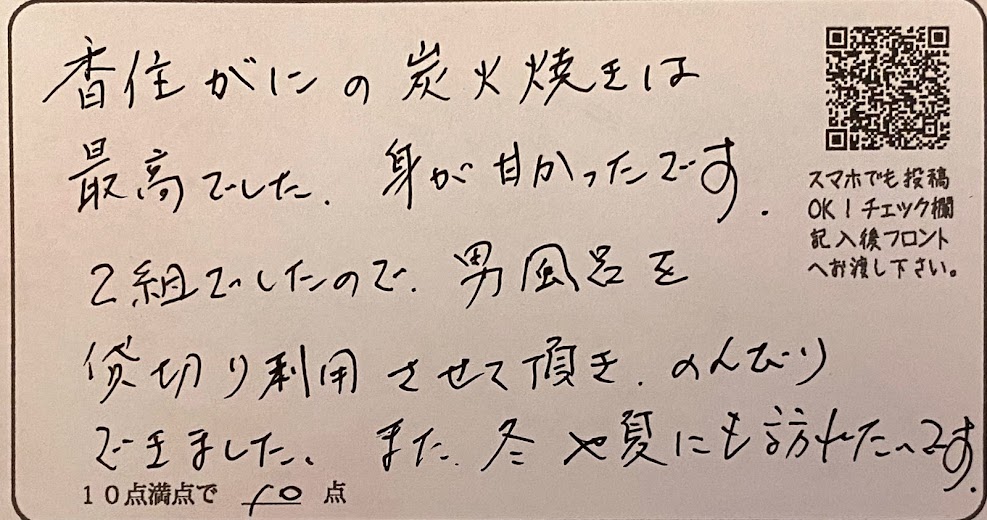 香住がにの炭火焼きは
最高でした. 身が甘かったです.
2組でしたので、男風呂を
貸切り利用させて頂き、のんびり
できました、また、冬や夏にも訪れたいです.
10点満点で 10 点
スマホでも投稿
OK!チェック欄
記入後フロント
へお渡し下さい。